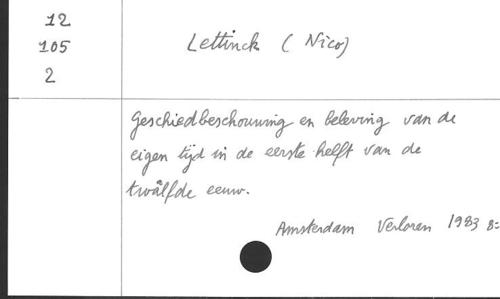 12
105
2
Lettinck (Nico)
Geschiedbeschouwing en beleving van de
eigen tijd in de eerste helft van de
twâlfde eeuw.
Amsterdam Verloren 1983 8=